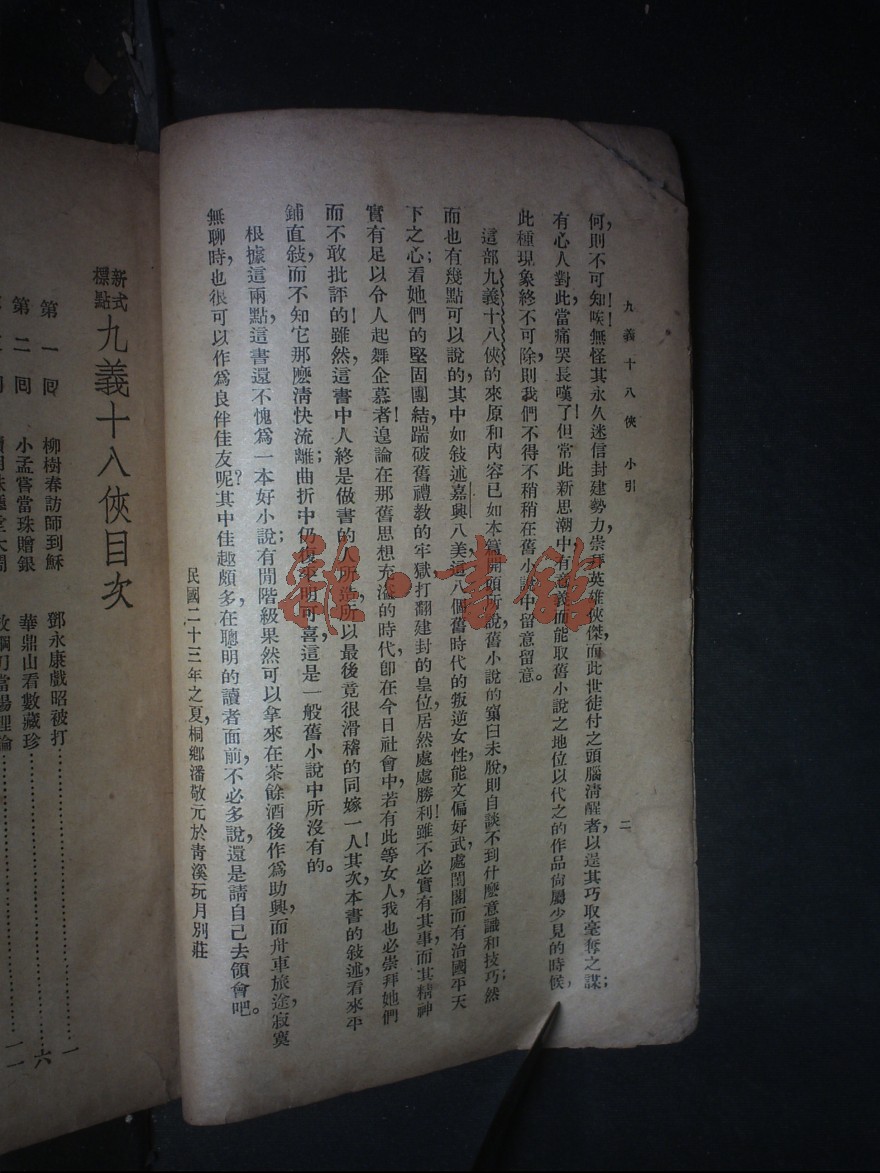 九義十八俠 小引
二
何,則不可知!唉!無怪其永久迷信封建勢力,崇拜英雄俠傑,而此世徒付之頭腦清醒者,以逞其巧取毫奪之謀;
有心人對此,當痛哭長嘆了!但當此新思潮中有意義而能取舊小說之地位以代之的作品尙屬少見的時候,
此種現象終不可除,則我們不得不稍稍在舊小說中留意留意。
這部九義十八俠的來原和內容,已如本篇開頭所說,舊小說的窠臼未脫,則自談不到什麽意識和技巧;然
而也有幾點可以說的,其中如敍述嘉興八美,這八個舊時代的叛逆女性,能文偏好武,處閨閣而有治國平天
下之心;看她們的堅固團結,踹破舊禮教的牢獄,打翻建封的皇位,居然處處勝利!雖不必實有其事,而其精神
實有足以令人起舞企慕者!遑論在那舊思想充溢的時代,卽在今日社會中,若有此等女人,我也必崇拜她們
而不敢批評的!雖然,這書中人終是做書的人所造,所以最後竟很滑稽的同嫁一人!其次,本書的敍述,看來平
鋪直敍,而不知它那麽淸快流離;曲折中仍復明可喜,這是一般舊小說中所沒有的。
根據這兩點,這書還不愧爲一本好小說;有閒階級果然可以拿來在茶餘酒後作爲助興,而舟車旅途,寂寞
無聊時,也很可以作爲良伴佳友呢?其中佳趣頗多,在聰明的讀者面前,不必多說,還是請自己去領會吧。
民國二十三年之夏,桐鄉潘敬元於青溪玩月別莊
新式標點 九義十八俠目次
第一回 柳樹春訪師到穌 鄧永康戲昭被打……一
第二回 小孟嘗當珠贈銀 華鼎山看數藏珍……六
雜·書館